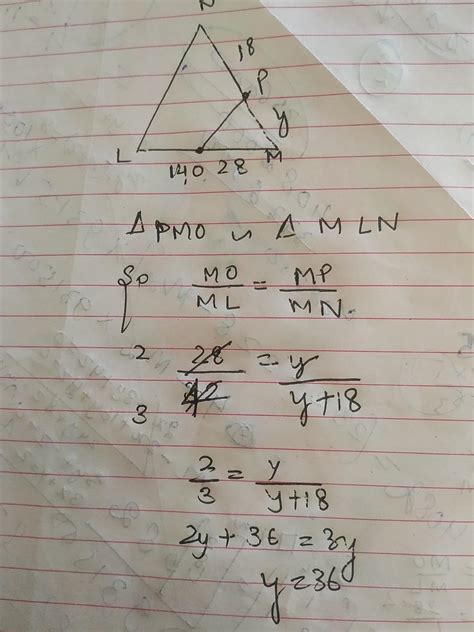 N
18
P
y
L M
14 O 28
Δ PMO ∽ Δ MLN
So MO/ML = MP/MN.
2/3 28/42 = y/y+18
2/3 = y/y+18
2y + 36 = 3y
y = 36